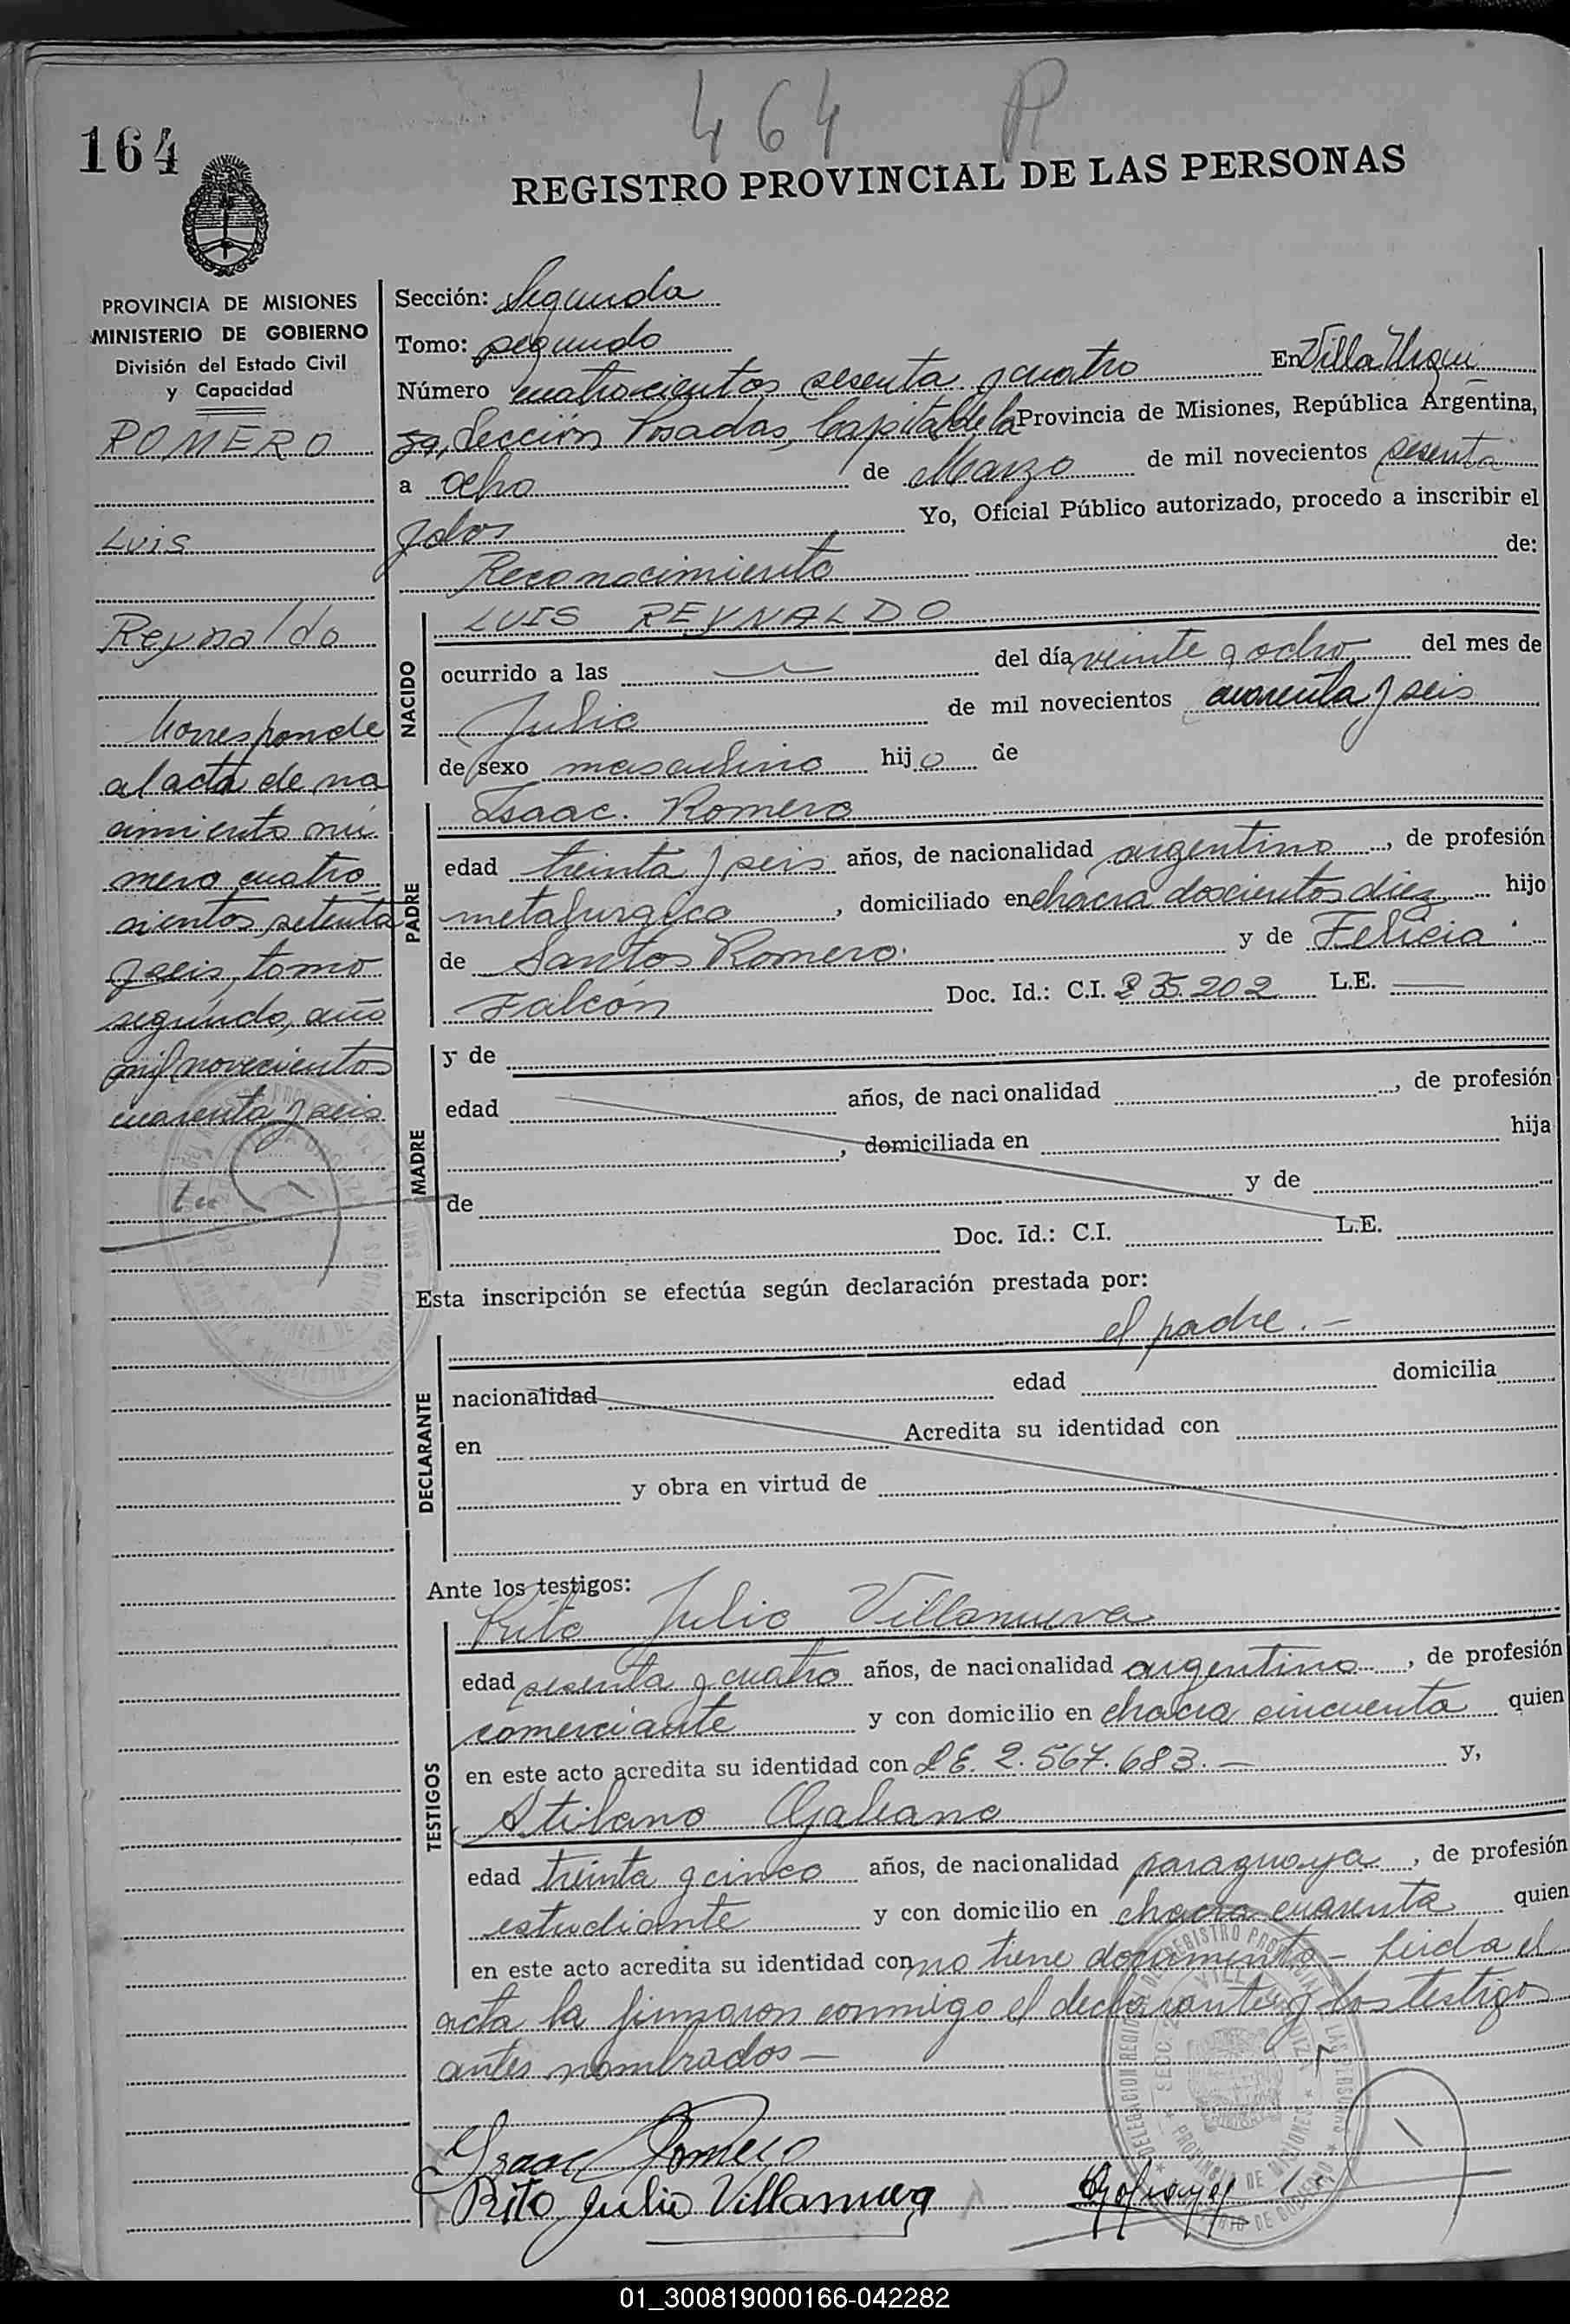 464
164
REGISTRO PROVINCIAL DE LAS PERSONAS
PROVINCIA DE MISIONES
MINISTERIO DE GOBIERNO
División del Estado Civil
y Capacidad
ROMERO
Luis
Reynaldo
Corresponde
al acta de na
cimiento nú
mero cuatro
cientos, setenta
y seis, tomo
segundo, año
mil novecientos
cuarenta y seis
Sección: Segunda
Tomo: segundo
Número cuatrocientos sesenta y cuatro En Villa Urqui
za, Sección Posadas, Capital de la Provincia de Misiones, República Argentina,
a ocho de Marzo de mil novecientos sesenta
y dos Yo, Oficial Público autorizado, procedo a inscribir el
Reconocimiento de:
NACIDO
LUIS REYNALDO
ocurrido a las del día veinte y ocho del mes de
Julio de mil novecientos cuarenta y seis
de sexo masculino hijo de
PADRE
Isaac. Romero
edad treinta y seis años, de nacionalidad argentino, de profesión
metalurgico, domiciliado en chacra doscientos diez hijo
de Santos Romero. y de Felicia
Falcón Doc. Id.: C.I. 235.202 L.E. —
MADRE
y de
edad años, de nacionalidad , de profesión
, domiciliada en hija
de y de
Doc. Id.: C.I. L.E.
Esta inscripción se efectúa según declaración prestada por:
el padre. —
DECLARANTE
nacionalidad edad domicilia
en Acredita su identidad con
y obra en virtud de
Ante los testigos:
TESTIGOS
Rito Julio Villanueva
edad sesenta y cuatro años, de nacionalidad argentino, de profesión
comerciante y con domicilio en chacra cincuenta quien
en este acto acredita su identidad con L.E. 2.567.683. — y,
Galeano
edad treinta y cinco años, de nacionalidad paraguaya, de profesión
estudiante y con domicilio en chacra cuarenta quien
en este acto acredita su identidad con no tiene documento — Leida el
acta la firmaron conmigo el declarante y los testigos
antes nombrados —
Isaac Romero
Rito Julio Villanueva
01_300819000166-042282